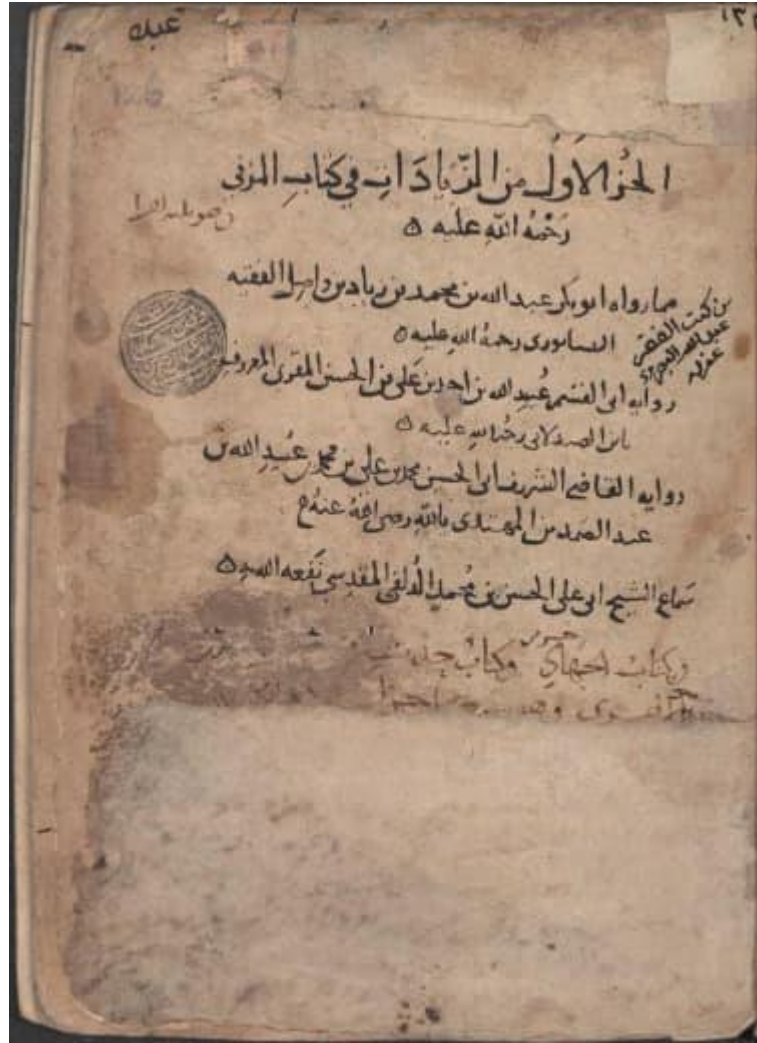 عبك
١٣
الجزُ الاَولُ من الزّيادَاتِ في كتابِ المزني
رَحْمَهُ اللّه عليه ٥
مما رواه ابو بكر عبد الله بن محمد بن زياد بن واصل الفقيه
النيسابوري رحمهُ الله عليه ٥
من كتب الفقير
عبد الله
عنه
روايه ابى القسم عُبيد الله بن احمد بن عَلي بن الحسن المقرى المعروف
بابن الصيدلانى رحمُه الله عليه ٥
روايه القاضى الشريف ابى الحسين محمد بن على بن محمد بن عُبيد الله بن
عبد الصمد بن المهتدى بالله رضى الله عنه
سَماع الشيخ ابى على الحسن بن مُحمد الدُلفى المقدسي نَفَعه الله به ٥
وكتاب وكتاب